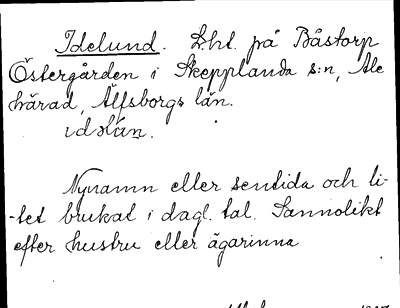 Idelund. Lht. på Båstorp
Östergården i Skepplanda s:n, Ale
härad, Älfsborgs län.
Nynamn eller sentida och li-
-tet brukat i dagl. tal. Sannolikt
efter hustru eller ägarinna